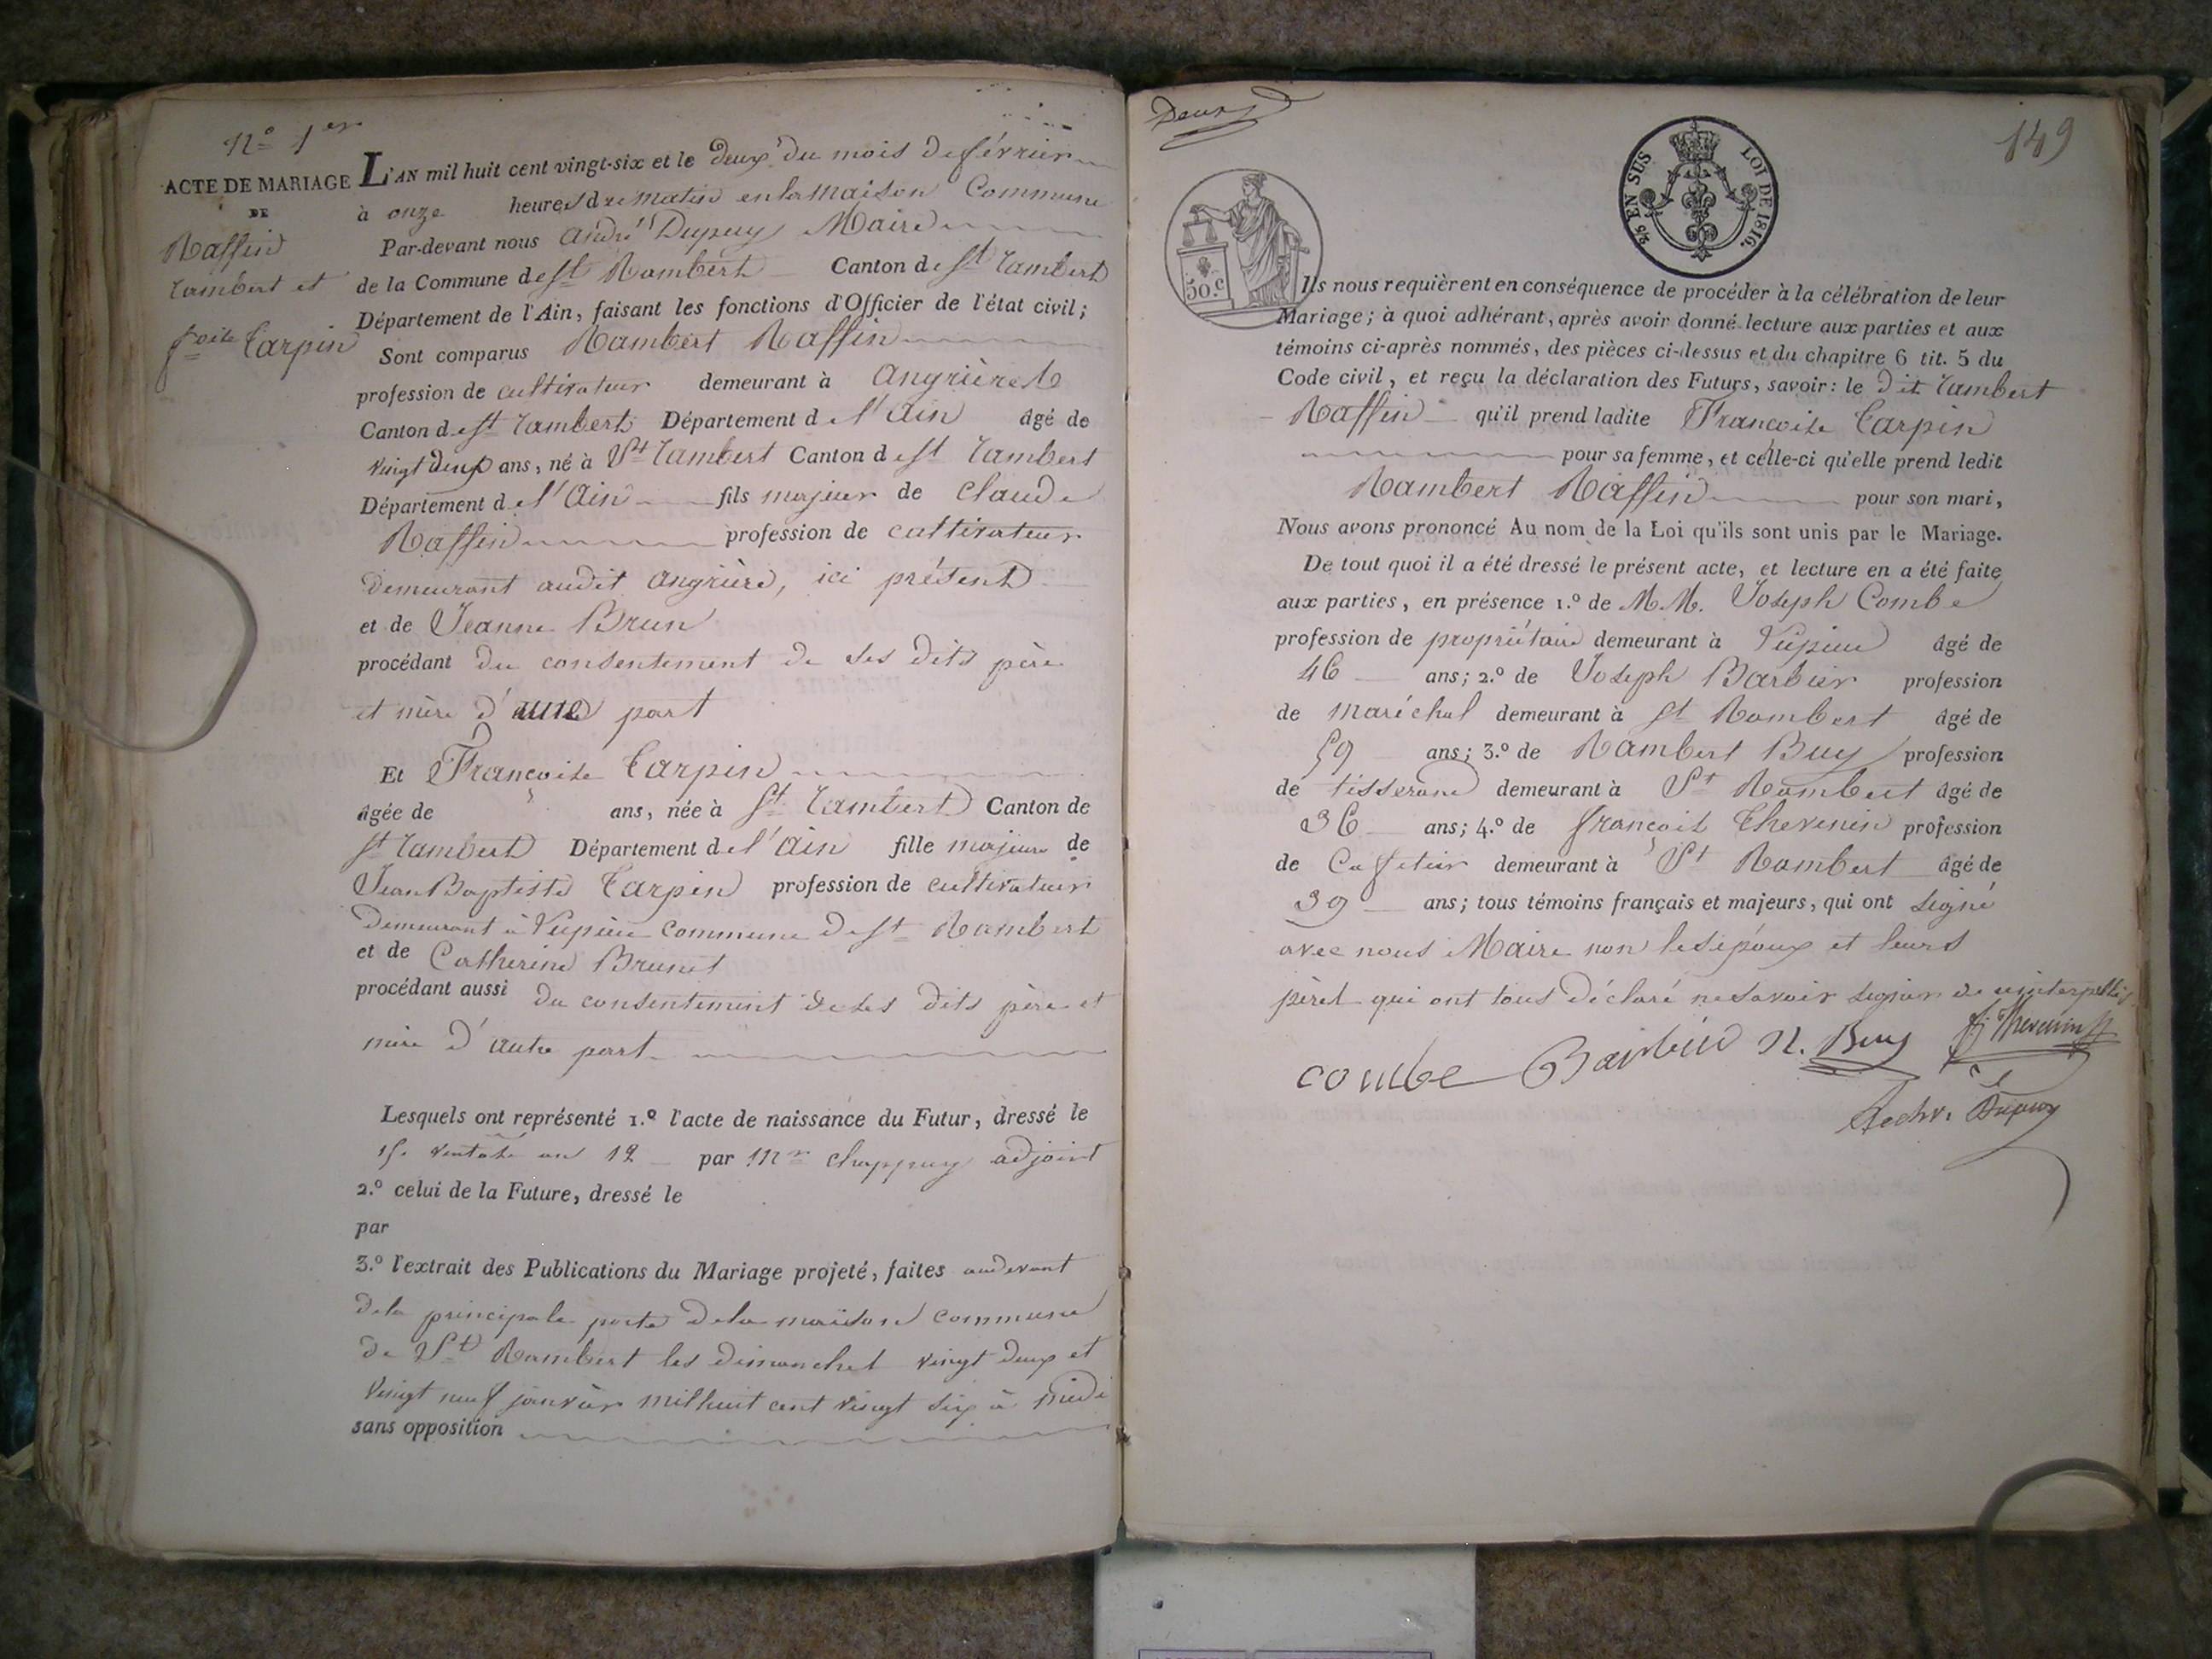 N° 1er
ACTE DE MARIAGE
DE
Raffin
rambert et
fcoise Carpin
L'AN mil huit cent vingt-six et le Deux du mois de février
à onze heures du matin en la maison Commune
Par-devant nous andré Dupuy Maire
de la Commune de st Rambert Canton de st rambert
Département de l'Ain, faisant les fonctions d'Officier de l'état civil;
Sont comparus Rambert Raffin
profession de cultivateur demeurant à angrières
Canton de st rambert Département de l'ain âgé de
vingt deux ans, né à St rambert Canton de st rambert
Département de l'ain fils majeur de claude
Raffin profession de cultivateur
Demeurant audit angrière, ici présent
et de Jeanne Brun
procédant du consentement de ses dits père
et mère d'une part
Et Françoise Carpin
âgée de ans, née à St rambert Canton de
st rambert Département de l'ain fille majeure de
Jean Baptiste Carpin profession de cultivateur
Demeurant à Vupieu commune de st Rambert
et de Catherine Brunet
procédant aussi du consentement de ses dits père et
mère d'autre part
Lesquels ont représenté 1.º l'acte de naissance du Futur, dressé le
15 ventose an 12 par Mr chappuy adjoint
2.º celui de la Future, dressé le
par
3.º l'extrait des Publications du Mariage projeté, faites audevant
de la principale porte de la maison commune
de St Rambert les dimanches vingt deux et
vingt neuf janvier mil huit cent vingt six à midi
sans opposition
Deux
149
5/5 EN SUS LOI DE 1816.
50.c
Ils nous requièrent en conséquence de procéder à la célébration de leur
Mariage; à quoi adhérant, après avoir donné lecture aux parties et aux
témoins ci-après nommés, des pièces ci-dessus et du chapitre 6 tit. 5 du
Code civil, et reçu la déclaration des Futurs, savoir: le dit rambert
Raffin qu'il prend ladite Françoise Carpin
pour sa femme, et celle-ci qu'elle prend ledit
Rambert Raffin pour son mari,
Nous avons prononcé Au nom de la Loi qu'ils sont unis par le Mariage.
De tout quoi il a été dressé le présent acte, et lecture en a été faite
aux parties, en présence 1.º de M.M. Joseph Combe
profession de propriétaire demeurant à Vupieu âgé de
46 ans; 2.º de Joseph Barbier profession
de maréchal demeurant à st Rambert âgé de
59 ans; 3.º de Rambert Buy profession
de tisserand demeurant à St Rambert âgé de
36 ans; 4.º de françois Thevenin profession
de Caffetier demeurant à St Rambert âgé de
39 ans; tous témoins français et majeurs, qui ont signé
avec nous Maire non les époux et leurs
pères qui ont tous déclaré ne savoir signer de ce interpellés
combe Barbier R. Buy f Thevenin
Dupuy